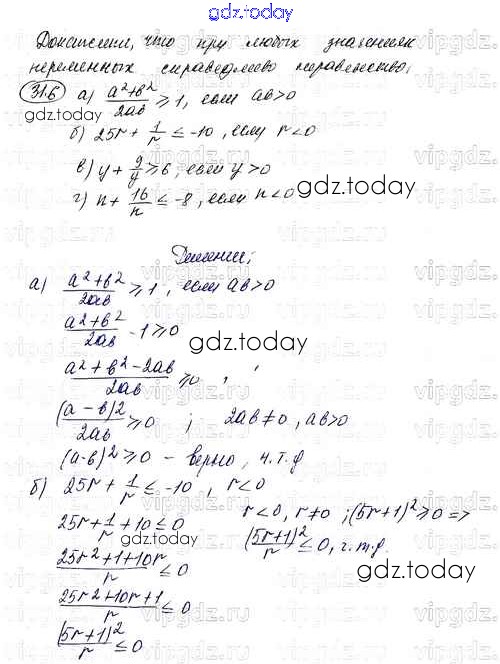 gdz.today
Докажите, что при любых значениях
переменных справедливо неравенство:
31.6 а) (a²+b²)/(2ab) ≥ 1, если ab>0
gdz.today
б) 25r + 1/r ≤ -10, если r<0
в) y + 9/y ≥ 6, если y>0
gdz.today
г) n + 16/n ≤ -8, если n<0
Решение:
а) (a²+b²)/(2ab) ≥ 1, если ab>0
(a²+b²)/(2ab) - 1 ≥ 0
gdz.today
(a²+b²-2ab)/(2ab) ≥ 0,
(a-b)²/(2ab) ≥ 0 ; 2ab≠0, ab>0
(a-b)² ≥ 0 – верно, ч.т.д
б) 25r + 1/r ≤ -10, r<0
25r + 1/r + 10 ≤ 0 r<0, r≠0 ; (5r+1)² ≥ 0 =>
(25r²+1+10r)/r ≤ 0 (5r+1)²/r ≤ 0, ч.т.д.
gdz.today
(25r²+10r+1)/r ≤ 0
(5r+1)²/r ≤ 0
gdz.today